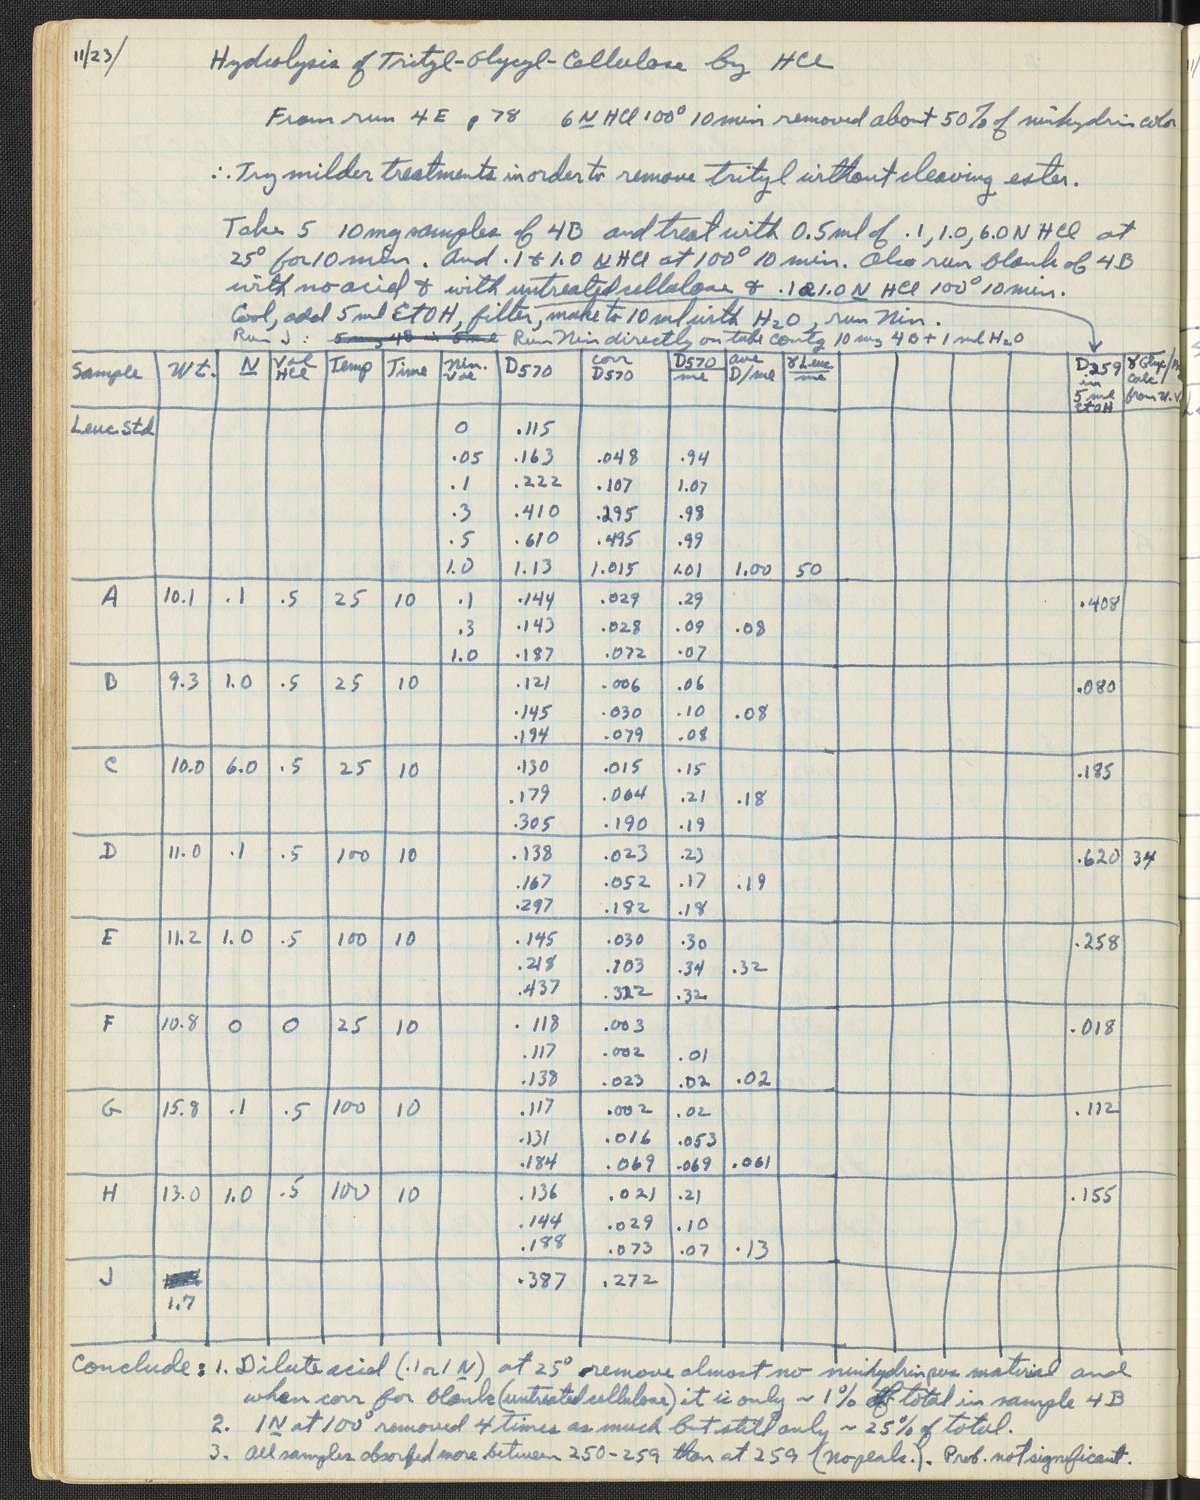 11/23/
Hydrolysis of Trityl-Glycyl-Cellulose by HCl
From run 4E p 78 6 N HCl 100° 10 min removed about 50% of ninhydrin color
∴ Try milder treatments in order to remove trityl without cleaving ester.
Take 5 10 mg samples of 4B and treat with 0.5 ml of .1, 1.0, 6.0 N HCl at
25° for 10 min. And .1 & 1.0 N HCl at 100° 10 min. Also run blank of 4B
with no acid & with untreated cellulose & .1 & 1.0 N HCl 100° 10 min.
Cool, add 5 ml EtOH, filter, make to 10 ml with H2O, run Nin.
Run J: Run Nin directly on tube contg 10 mg 4B + 1 ml H2O
Sample Wt. N Vol HCl Temp Time Nin. Vol D570 corr D570 D570/ml ave D/ml γ Leuc/ml D259 in 5 ml EtOH γ Glyc/ calc from U.V.
Leuc Std 0 .115
.05 .163 .048 .94
.1 .222 .107 1.07
.3 .410 .295 .98
.5 .610 .495 .99
1.0 1.13 1.015 1.01 1.00 50
A 10.1 .1 .5 25 10 .1 .144 .029 .29 .408
.3 .143 .028 .09 .08
1.0 .187 .072 .07
B 9.3 1.0 .5 25 10 .121 .006 .06 .080
.145 .030 .10 .08
.194 .079 .08
C 10.0 6.0 .5 25 10 .130 .015 .15 .185
.179 .064 .21 .18
.305 .190 .19
D 11.0 .1 .5 100 10 .138 .023 .23 .620 34
.167 .052 .17 .19
.297 .182 .18
E 11.2 1.0 .5 100 10 .145 .030 .30 .258
.218 .103 .34 .32
.437 .322 .32
F 10.8 0 0 25 10 .118 .003 .018
.117 .002 .01
.138 .023 .02 .02
G 15.8 .1 .5 100 10 .117 .002 .02 .112
.131 .016 .053
.184 .069 .069 .061
H 13.0 1.0 .5 100 10 .136 .021 .21 .155
.144 .029 .10
.188 .073 .07 .13
J .387 .272
1.7
Conclude: 1. Dilute acid (.1 or 1 N) at 25° remove almost no ninhydrin pos material and
when corr for blank (untreated cellulose) it is only ~ 1% of total in sample 4B
2. 1N at 100° removed 4 times as much but still only ~ 25% of total.
3. All samples absorbed more between 250-259 than at 259 (no peaks.). Prob. not significant.